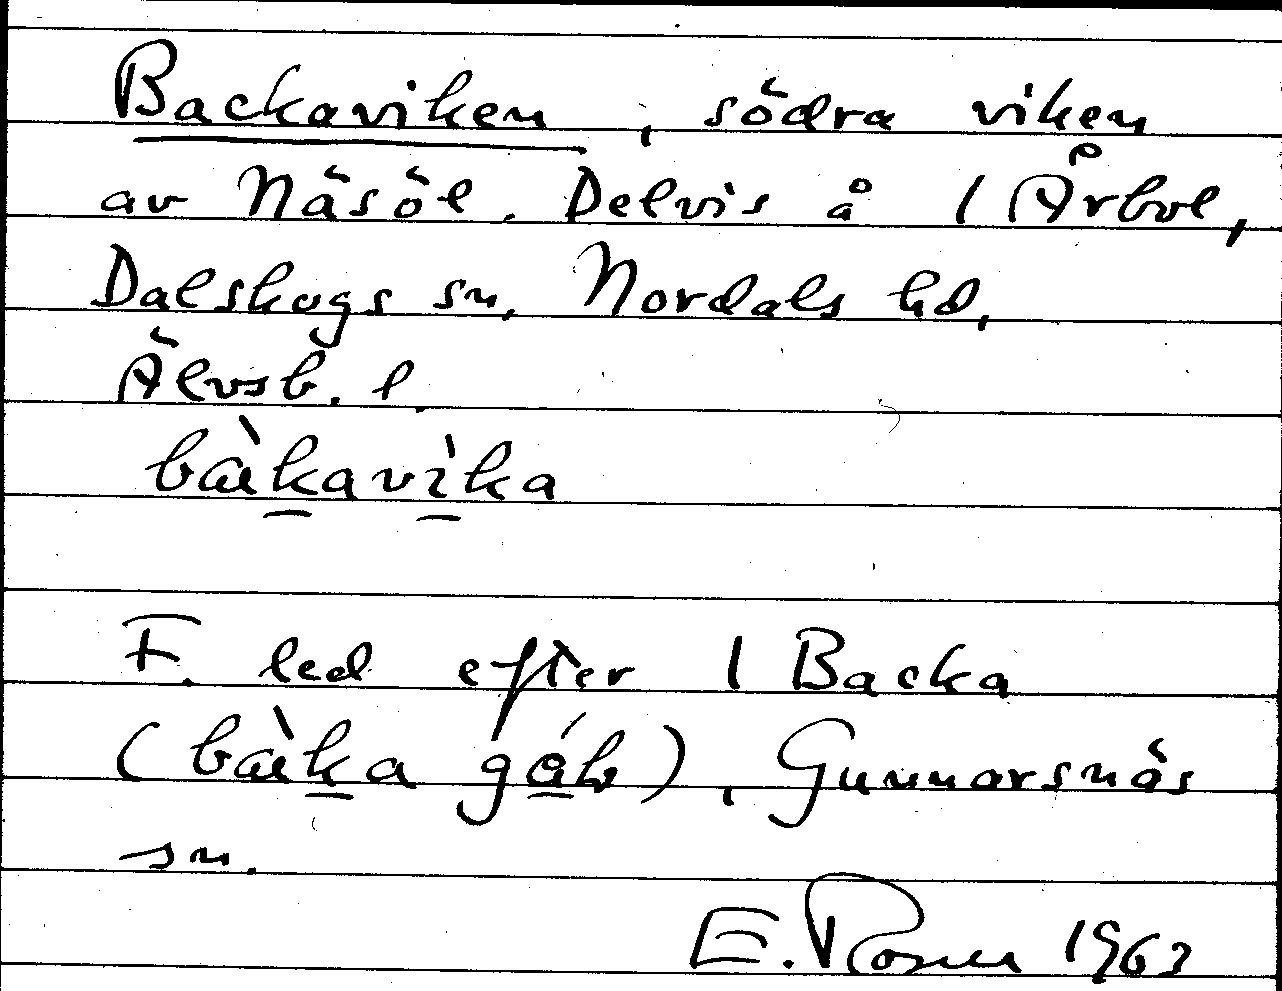 Backaviken, södra viken
av Näsöl. Delvis å 1 Årbol,
Dalskogs sn, Nordals hd,
Älvsb. l.
bàkavìka
F. led efter 1 Backa
(bàka gáḷv), Gunnarsnäs
sn.
E. Rosén 1963